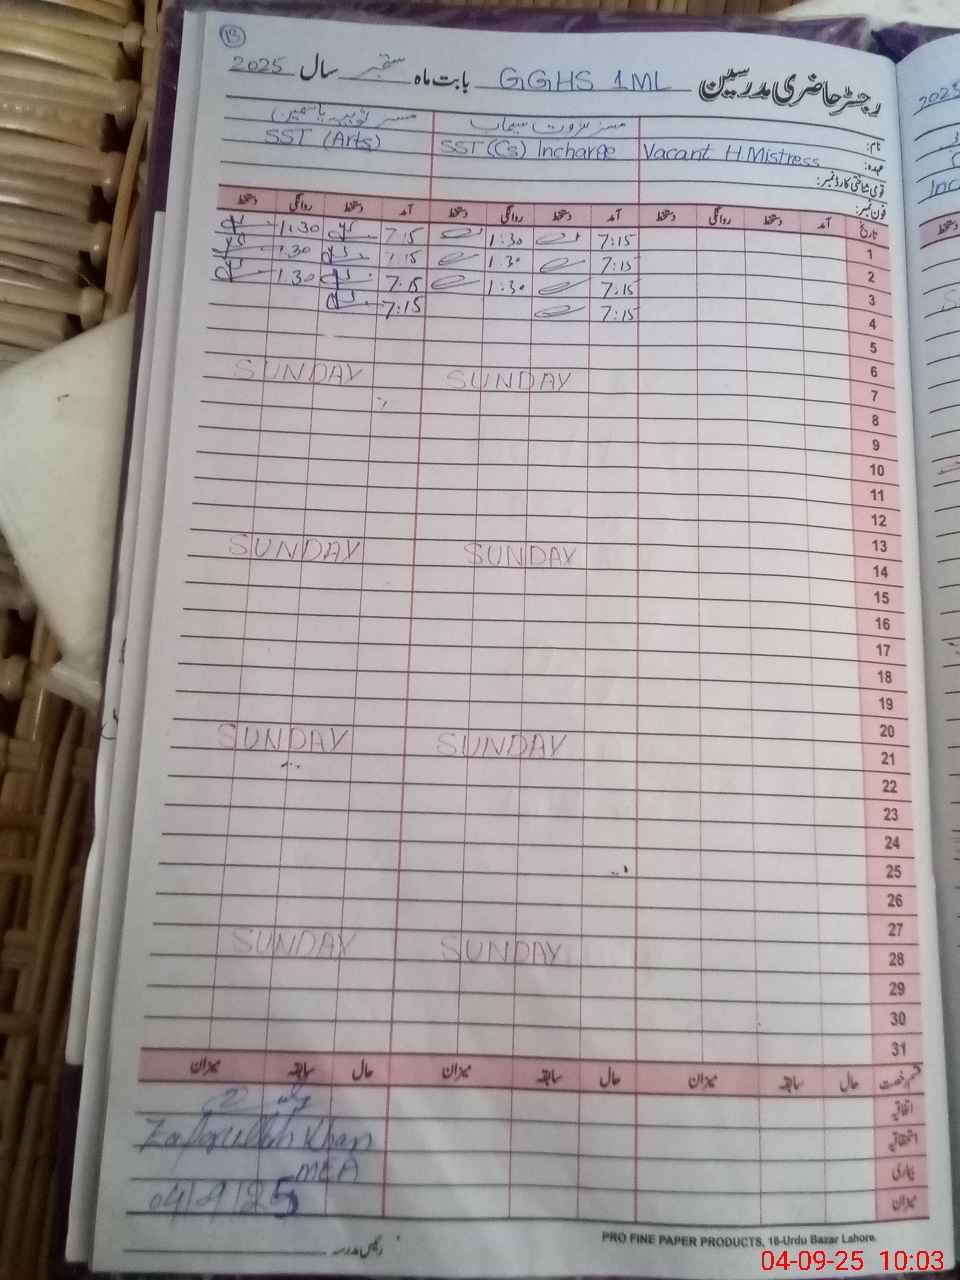 13
رجسٹر حاضری مدرسین GGHS 1ML بابت ماہ ستمبر سال 2025
نام: مسز ثوبیہ یاسمین
عہدہ: Vacant H.Mistress SST (Cs) Incharge SST (Arts)
قومی شناختی کارڈ نمبر:
فون نمبر:
تاریخ آمد دستخط روانگی دستخط آمد دستخط روانگی دستخط آمد دستخط روانگی دستخط
1 7:15 1:30 7:15 1.30
2 7:15 1:30 7:15 1.30
3 7:15 1:30 7:15 1.30
4 7:15 7:15
5
6
7 SUNDAY SUNDAY
8
9
10
11
12
13
14 SUNDAY SUNDAY
15
16
17
18
19
20
21 SUNDAY SUNDAY
22
23
24
25
26
27
28 SUNDAY SUNDAY
29
30
31
قسم رخصت حال سابقہ میزان حال سابقہ میزان حال سابقہ میزان
اتفاقیہ
استحقاقیہ
بیماری
میزان
Zafarullah Khan
MEA
04/9/25
رئیس مدرسہ
PRO FINE PAPER PRODUCTS, 16-Urdu Bazar Lahore.
04-09-25 10:03